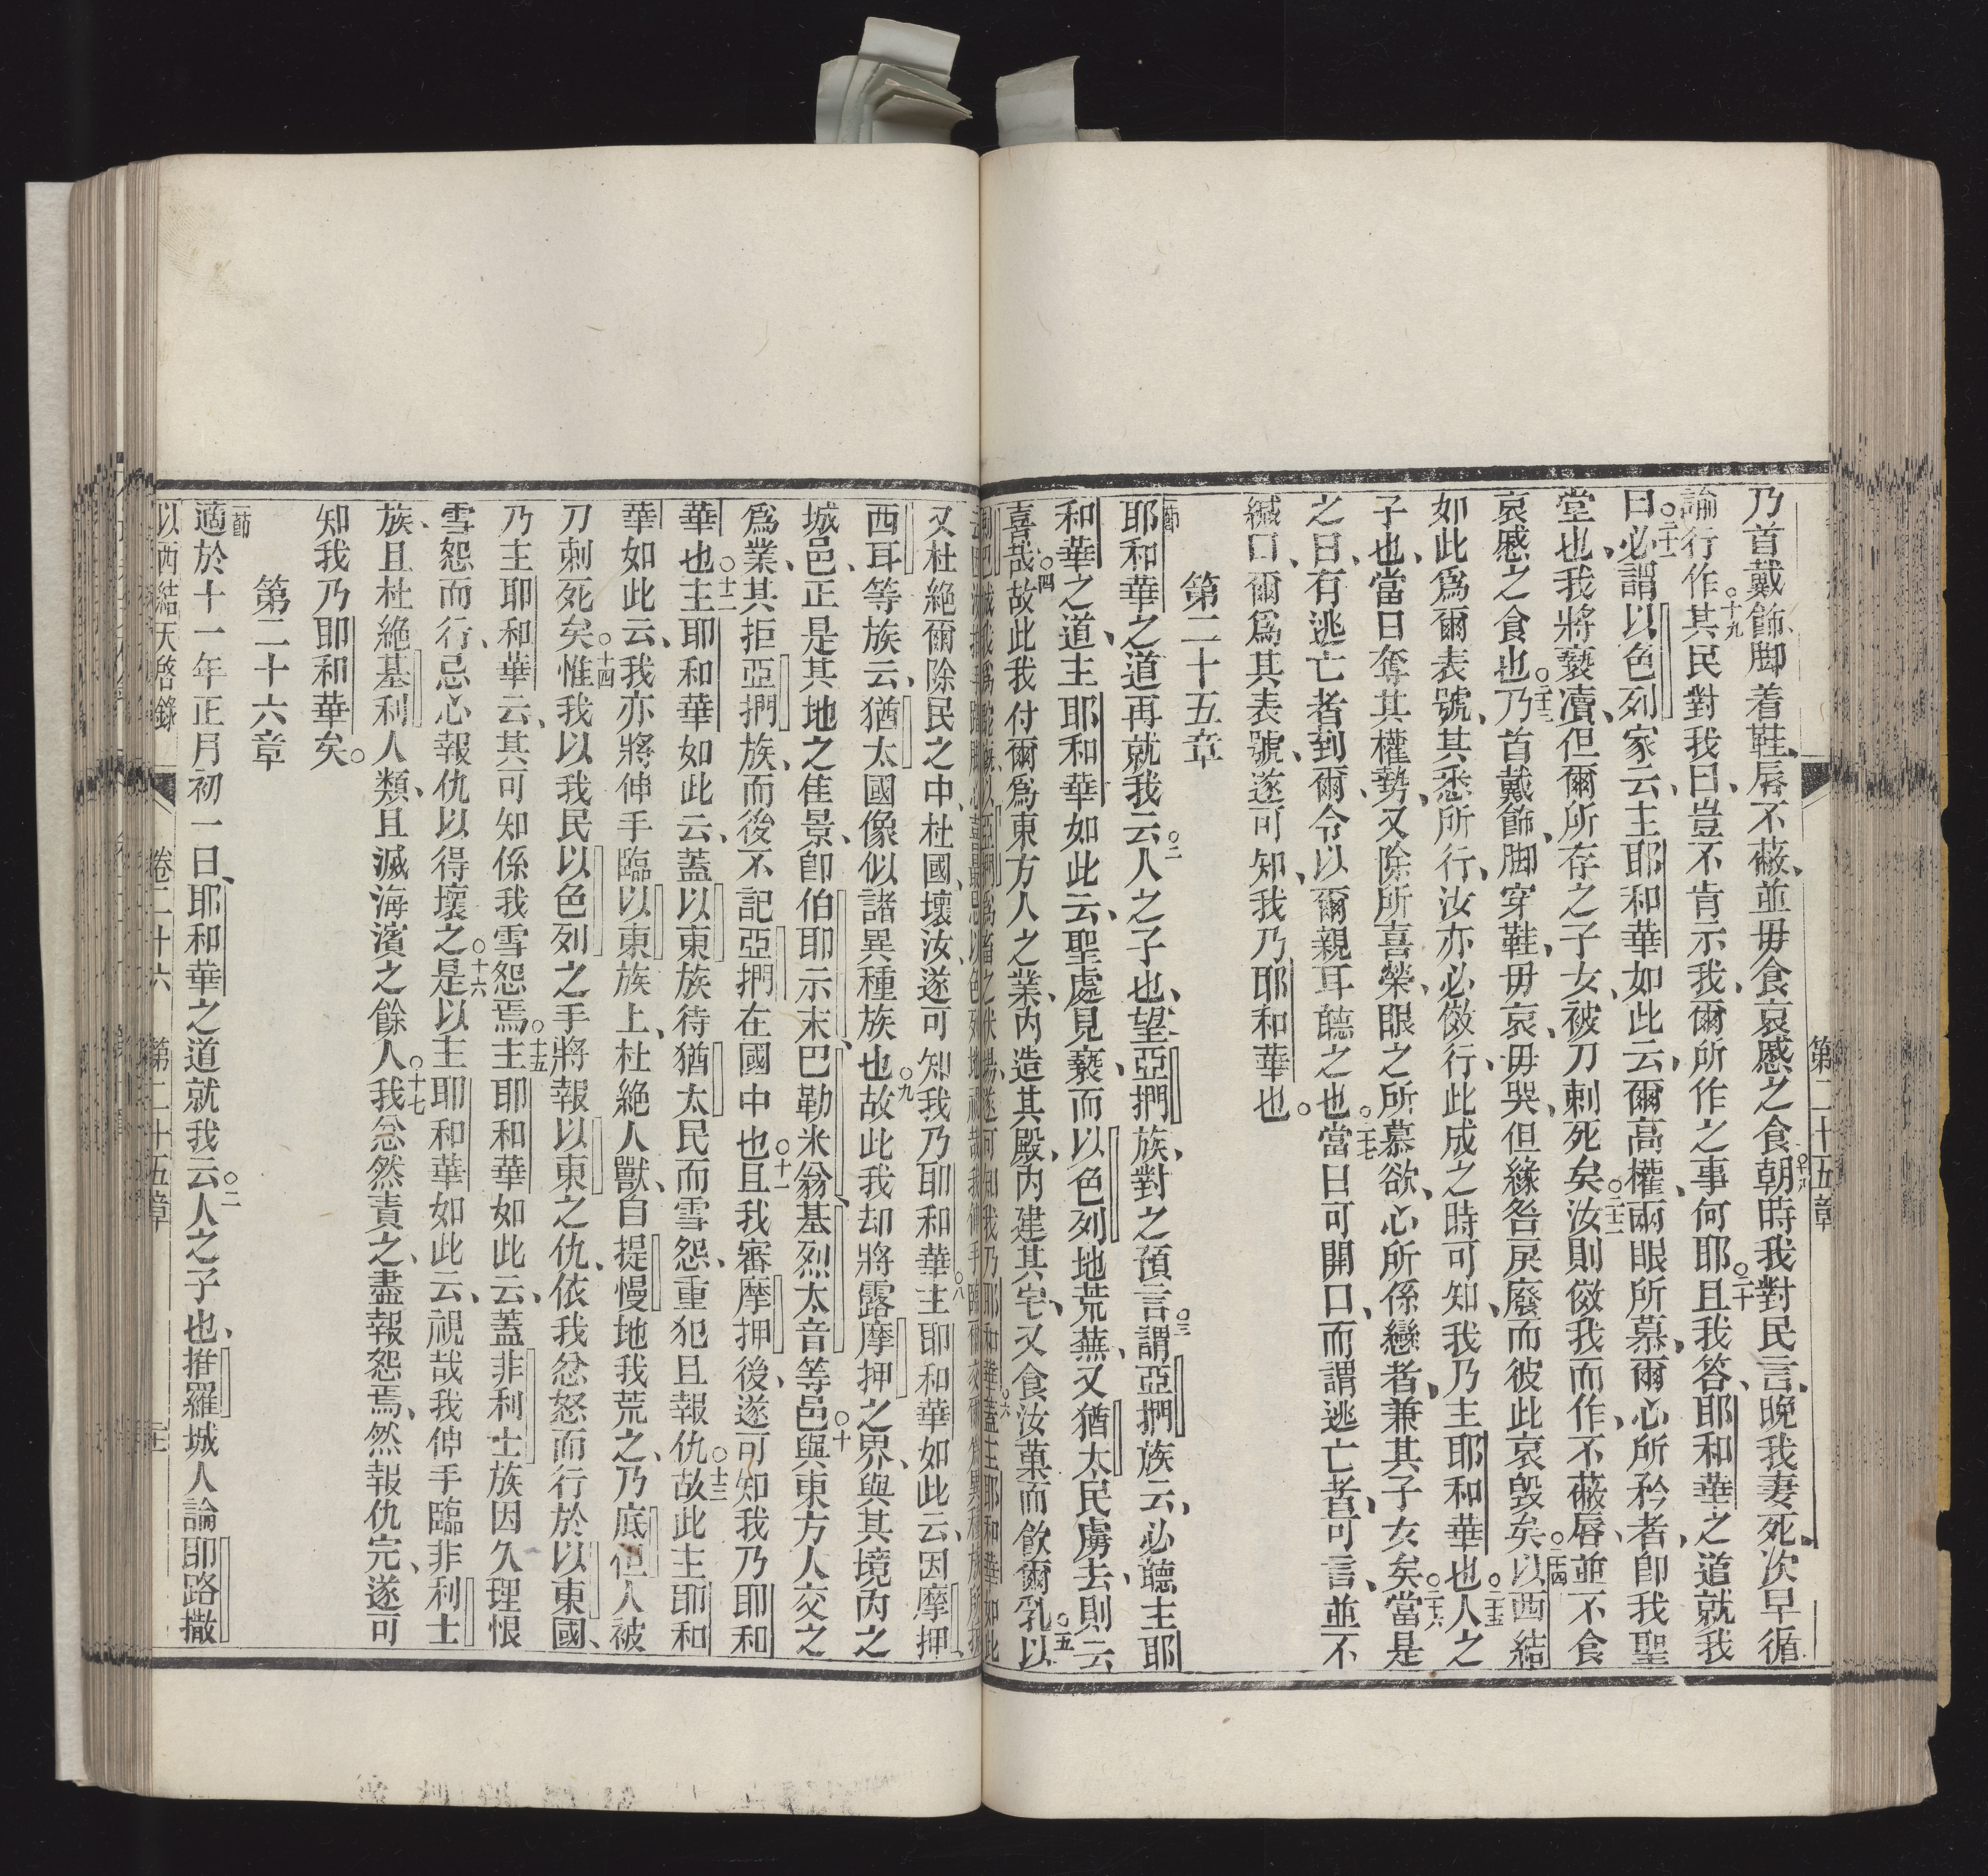 第二十五章
乃首戴飾、脚着鞋、唇不蔽、並毋食哀慼之食、○十八朝時我對民言、晚我妻死、次早循
諭行作、○十九其民對我曰、豈不肯示我、爾所作之事何耶、○二十且我答、耶和華之道就我
曰、○二十一必謂以色列家云、主耶和華如此云、爾高權、兩眼所慕、爾心所矜者、卽我聖
堂也、我將褻瀆、但爾所存之子女、被刀刺死矣、○二十二汝則傚我而作、不蔽唇、並不食
哀慼之食也、○二十三乃首戴飾、脚穿鞋、毋哀、毋哭、但緣咎戾廢、而彼此哀毀矣、○二十四以西結
如此爲爾表號、其悉所行、汝亦必傚行、此成之時可知、我乃主耶和華也、○二十五人之
子也、當日奪其權勢、又除所喜榮、眼之所慕欲、心所係戀者、兼其子女矣、○二十六當是
之日、有逃亡者到爾、令以爾親耳聽之也、○二十七當日可開口、而謂逃亡者、可言、並不
緘口、爾爲其表號、遂可知、我乃耶和華也。
第二十五章
節耶和華之道再就我云、○二人之子也、望亞捫族、對之預言、○三謂亞捫族云、必聽主耶
和華之道、主耶和華如此云、聖處見褻、而以色列地荒蕪、又猶太民虜去、則云
喜哉、○四故此我付爾爲東方人之業、內造其殿、內建其宅、又食汝菓而飲爾乳、○五以
又杜絶爾除民之中、杜國、壞汝、遂可知我乃耶和華、○八主耶和華如此云、因摩押、
西耳等族云、猶太國像似諸異種族也、○九故此我却將露摩押之界、與其境丙之
城邑、正是其地之佳景、卽伯耶示末、巴勒米翁、基烈太音等邑、○十與東方人交之
爲業、其拒亞捫族、而後不記亞捫在國中也、○十一且我審摩押後、遂可知我乃耶和
華也、○十二主耶和華如此云、蓋以東族待猶太民而雪怨、重犯且報仇、○十三故此主耶和
華如此云、我亦將伸手臨以東族上、杜絶人獸、自提慢地我荒之、乃底但人被
刀刺死矣、○十四惟我以我民以色列之手、將報以東之仇、依我忿怒而行於以東國、
乃主耶和華云、其可知係我雪怨焉、○十五主耶和華如此云、蓋非利士族因久理恨
雪怨而行、忌心報仇以得壞之、○十六是以主耶和華如此云、視哉我伸手臨非利士
族、且杜絶基利人類、且滅海濱之餘人、○十七我忿然責之、盡報怨焉、然報仇完、遂可
知我乃耶和華矣。
第二十六章
節適於十一年正月初一日、耶和華之道就我云、○二人之子也、推羅城人論耶路撒
以西結天啓錄 卷二十六 第二十五章